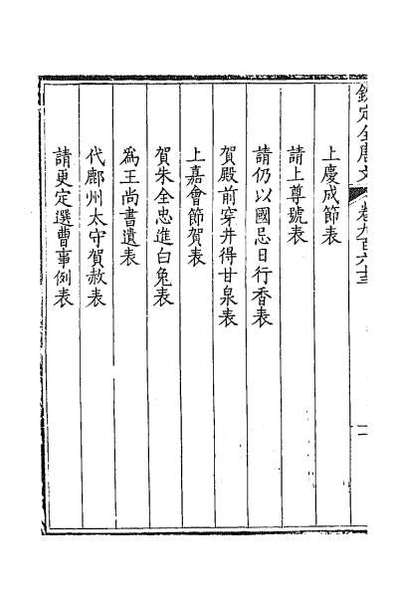 欽定全唐文 卷九百六十三
上慶成節表
請上尊號表
請仍以國忌日行香表
賀殿前穿井得甘泉表
上嘉會節賀表
賀朱全忠進白兔表
為王尚書遺表
代鄜州太守賀赦表
請更定選曹事例表